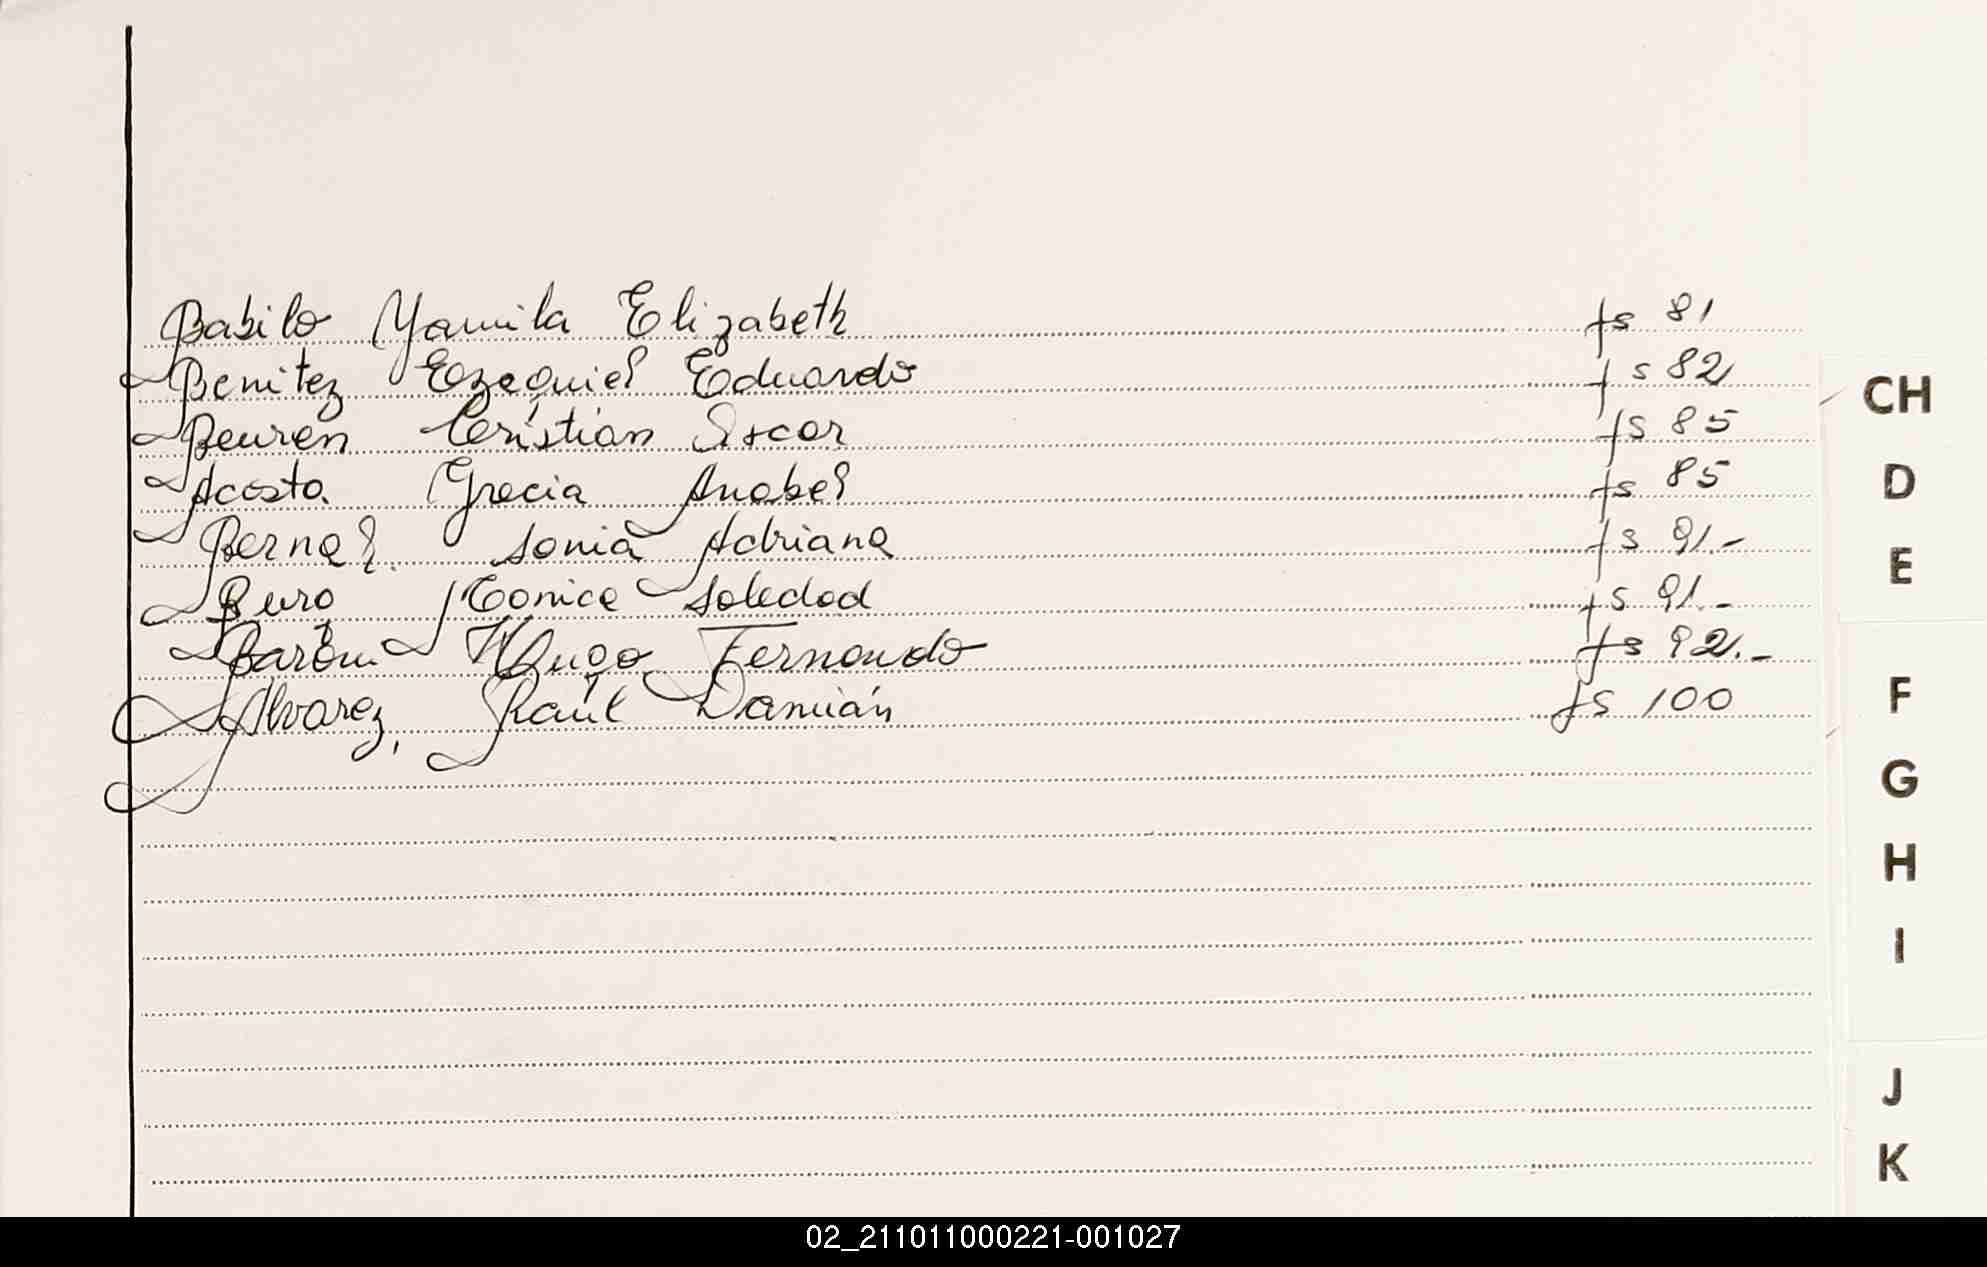 Babilo Yamila Elizabeth fs 81
Benitez Ezequiel Eduardo fs 82
Beuren Cristian Oscar fs 85
Acosta Grecia Anabel fs 85
Bernal. Sonia Adriana fs 91.-
Soledad fs 91.-
Barón Hugo Fernando fs 92.-
Alvarez, Raúl Damián fs 100
CH
D
E
F
G
H
I
J
K
02_211011000221-001027